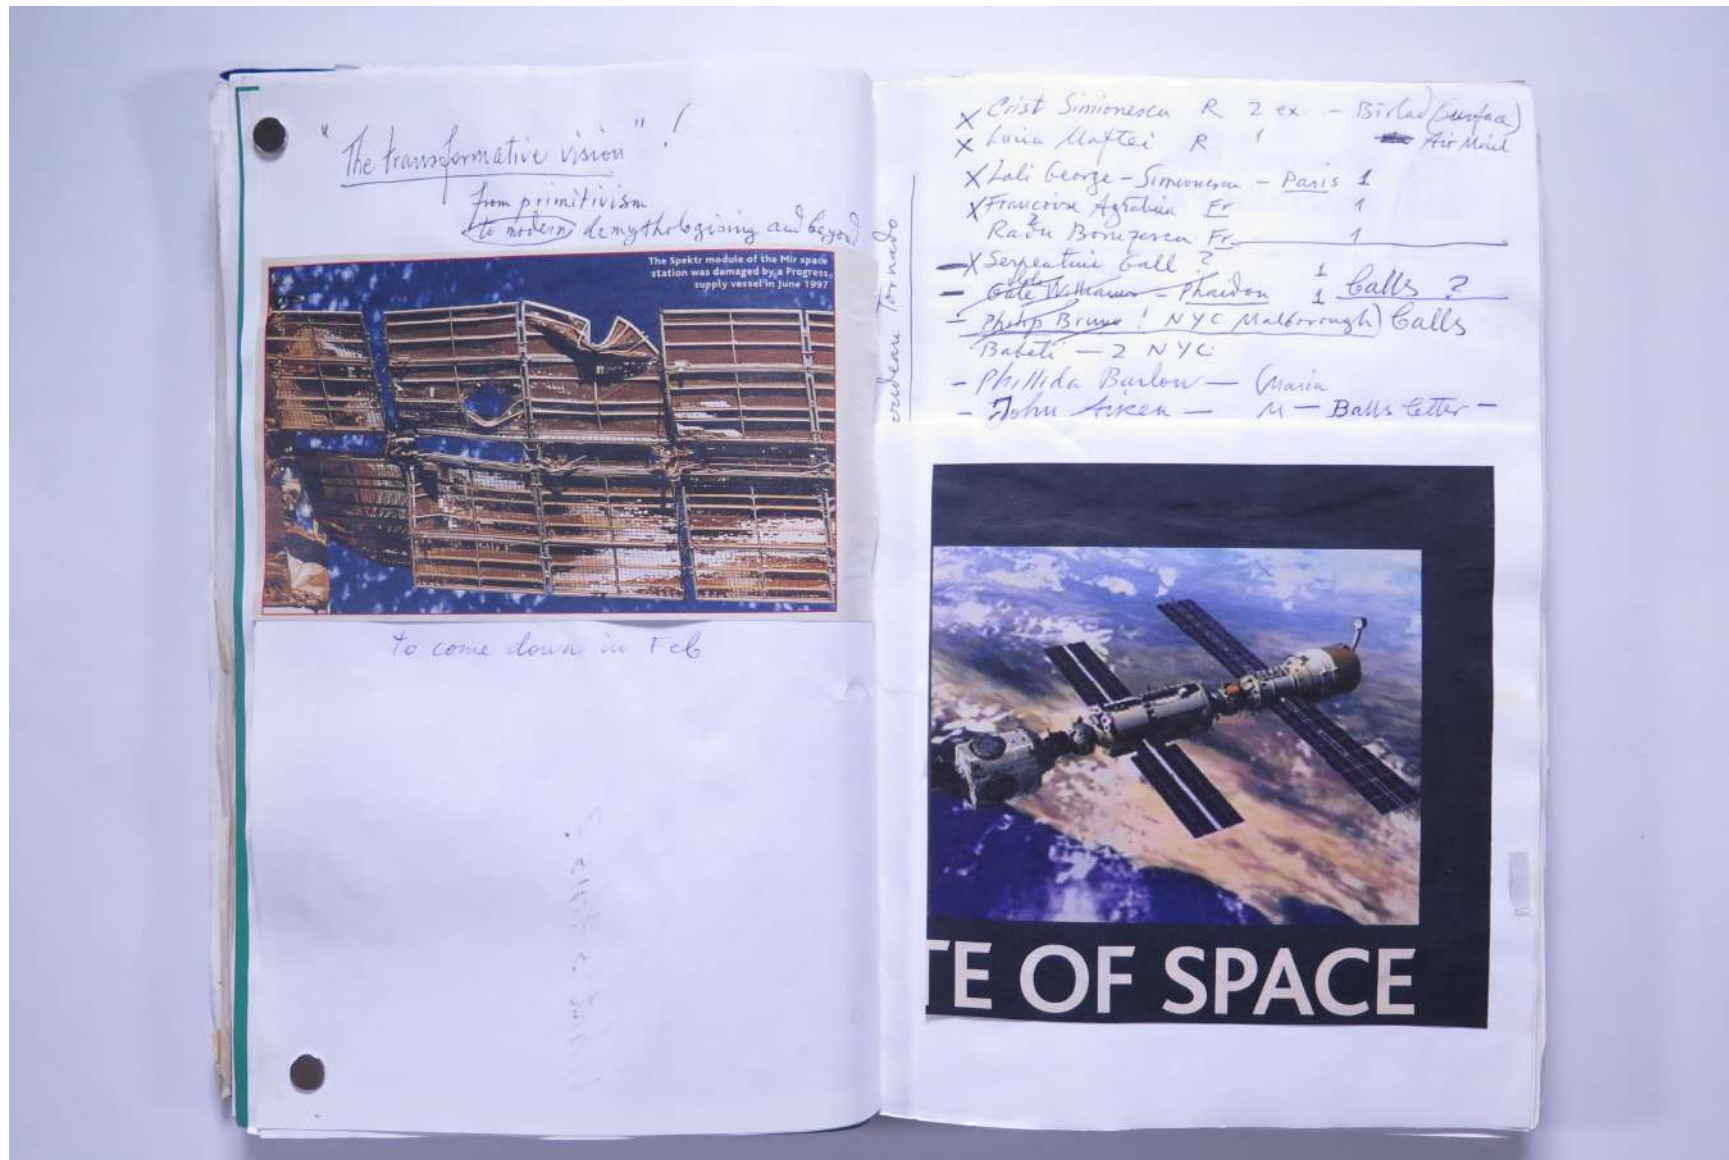 "The transformative vision"!
from primitivism
to modern demythologising and beyond
The Spektr module of the Mir space
station was damaged by a Progress
supply vessel in June 1997
to come down in Feb
Tornado
X Crist Simionescu R 2 ex. - Bîrlad (surface)
X Luiia Maftei R 1 Air Mail
X Lali George - Simionescu - Paris 1
X Francoise Fr 1
Radu Fr 1
- X Serpentine Gall ? 1
- Williams - Phaidon 1 Calls ?
- Philip Bruno ! NYC Malborough) Calls
Babeti - 2 NYC
- Phillida Barlow - Maria
- John Aiken - M - Balls letter -
TE OF SPACE